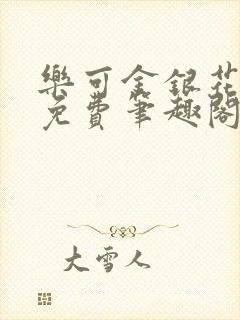 樂可金銀花
免費筆趣閣
大雪人